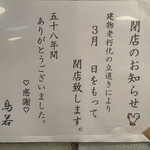 閉店のお知らせ
建物老朽化の立退きにより
３月　日をもって
閉店致します。
五十八年間
ありがとうございました。
♡感謝♡
鳥若